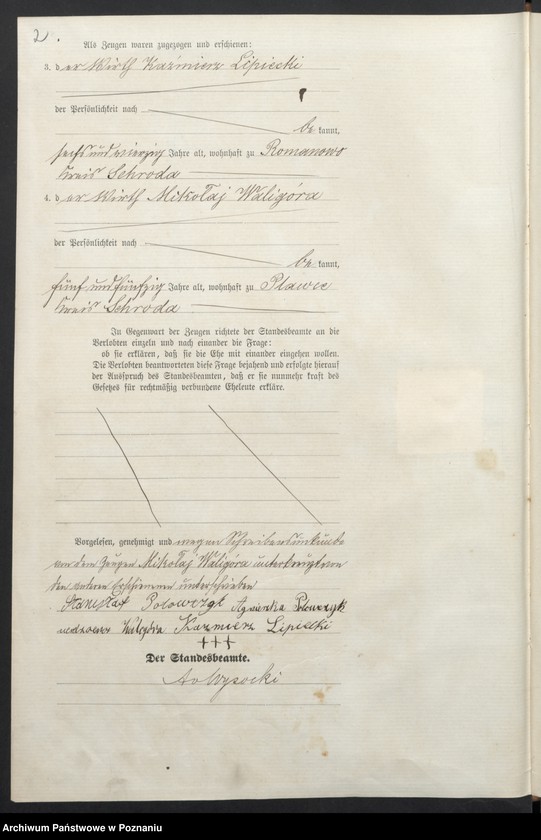 2.
Als Zeugen waren zugezogen und erschienen:
3. der Wirth Kaźmierz Lipiecki
der Persönlichkeit nach
be kannt,
sechs und vierzig Jahre alt, wohnhaft zu Romanowo
Kreis Schroda
4. der Wirth Mikołaj Waligóra
der Persönlichkeit nach
be kannt,
fünf und fünfzig Jahre alt, wohnhaft zu Pławce
Kreis Schroda
In Gegenwart der Zeugen richtete der Standesbeamte an die
Verlobten einzeln und nach einander die Frage:
ob sie erklären, daß sie die Ehe mit einander eingehen wollen.
Die Verlobten beantworteten diese Frage bejahend und erfolgte hierauf
der Ausspruch des Standesbeamten, daß er sie nunmehr kraft des
Gesetzes für rechtmäßig verbundene Eheleute erkläre.
Vorgelesen, genehmigt und wegen Schreibensunkunde
von dem Zeugen Mikołaj Waligóra unterkreuzt von
den anderen Erschienenen unterschrieben
Stanisław Agnieszka
Kazmierz Lipiecki
+++
Der Standesbeamte.
Wysocki
Archiwum Państwowe w Poznaniu